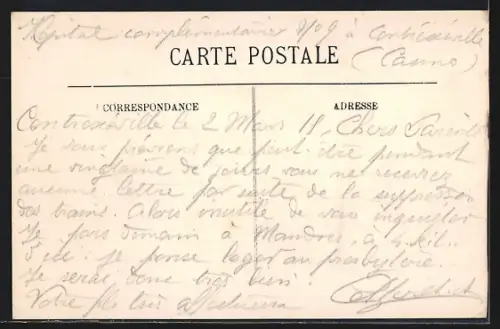 Hôpital complémentaire N° 9 à Contrexéville
CARTE POSTALE (Casino)
CORRESPONDANCE ADRESSE
Contrexéville le 2 Mars 18, Chers Parents
Je vous préviens que peut être pendant
une vingtaine de jours vous ne recevrez
aucune lettre par suite de la suppression
des trains. Alors inutile de vous inquieter
Je pars demain à Mandres, à 4 kil.
d'ici. Je pense loger au presbytère.
Je serai donc très bien.
Votre fils très affectueux